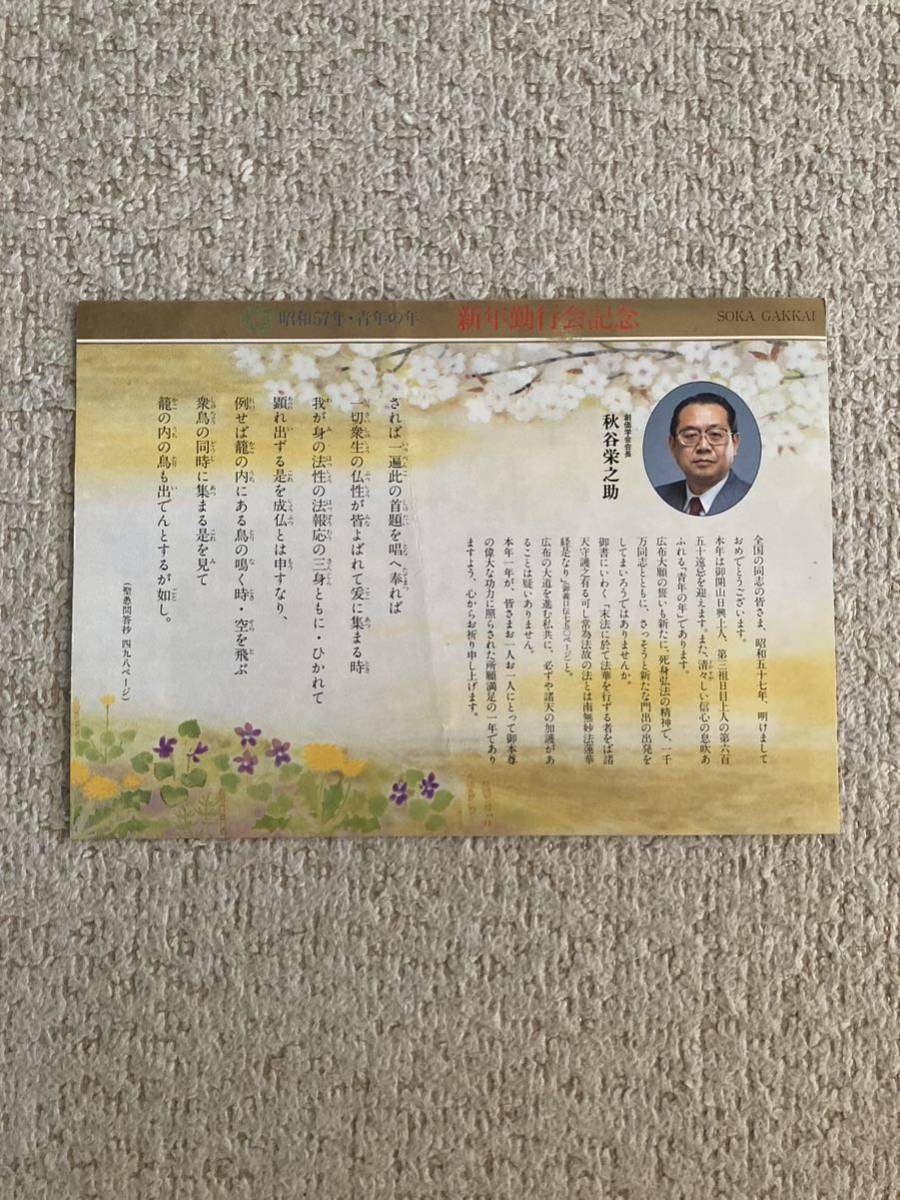 昭和57年・青年の年
新年勤行会記念
SOKA GAKKAI
創価学会会長
秋谷栄之助
全国の同志の皆さま、昭和五十七年、明けまして
おめでとうございます。
本年は御開山日興上人、第三祖日目上人の第六百
五十遠忌を迎えます。また、清々しい信心の息吹あ
ふれる「青年の年」であります。
広布大願の誓いも新たに、死身弘法の精神で、一千
万同志とともに、さっそうと新たな門出の出発を
してまいろうではありませんか。
御書にいわく「末法に於て法華を行ずる者をば諸
天守護之有る可し常為法故の法とは南無妙法蓮華
経是なり」(御義口伝七五〇ページ)と。
広布の大道を進む私共に、必ずや諸天の加護があ
ることは疑いありません。
本年一年が、皆さまお一人お一人にとって御本尊
の偉大な功力に照らされた所願満足の一年であり
ますよう、心からお祈り申し上げます。
されば一遍此の首題を唱へ奉れば
一切衆生の仏性が皆よばれて爰に集まる時
我が身の法性の法報応の三身ともに・ひかれて
顕れ出ずる是を成仏とは申すなり、
例せば籠の内にある鳥の鳴く時・空を飛ぶ
衆鳥の同時に集まる是を見て
籠の内の鳥も出でんとするが如し。
(聖愚問答抄 四九八ページ)